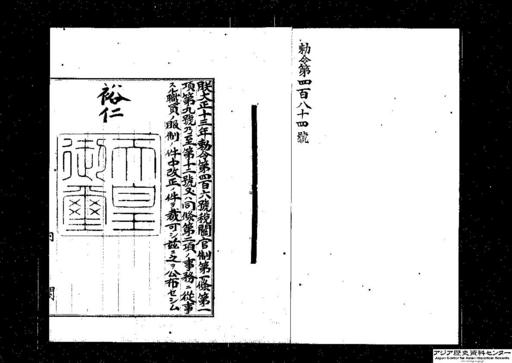 勅令第四百八十四號
朕大正十三年勅令第四百六號税關官制第一條第一
項第九號乃至第十二號又ハ同條第二項ノ事務ニ從事
スル職員ノ服制ノ件中改正ノ件ヲ裁可シ茲ニ之ヲ公布セシム
裕仁
天皇
御璽
内閣
アジア歴史資料センター
Japan Center for Asian Historical Records